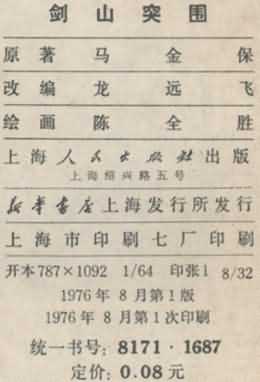 剑山突围
原著 马金保
改编 龙远飞
绘画 陈全胜
上海人民出版社出版
上海绍兴路五号
新华书店上海发行所发行
上海市印刷七厂印刷
开本787×1092 1/64 印张1 8/32
1976年 8月第1版
1976年 8月第1次印刷
统一书号：8171·1687
定价：0.08元